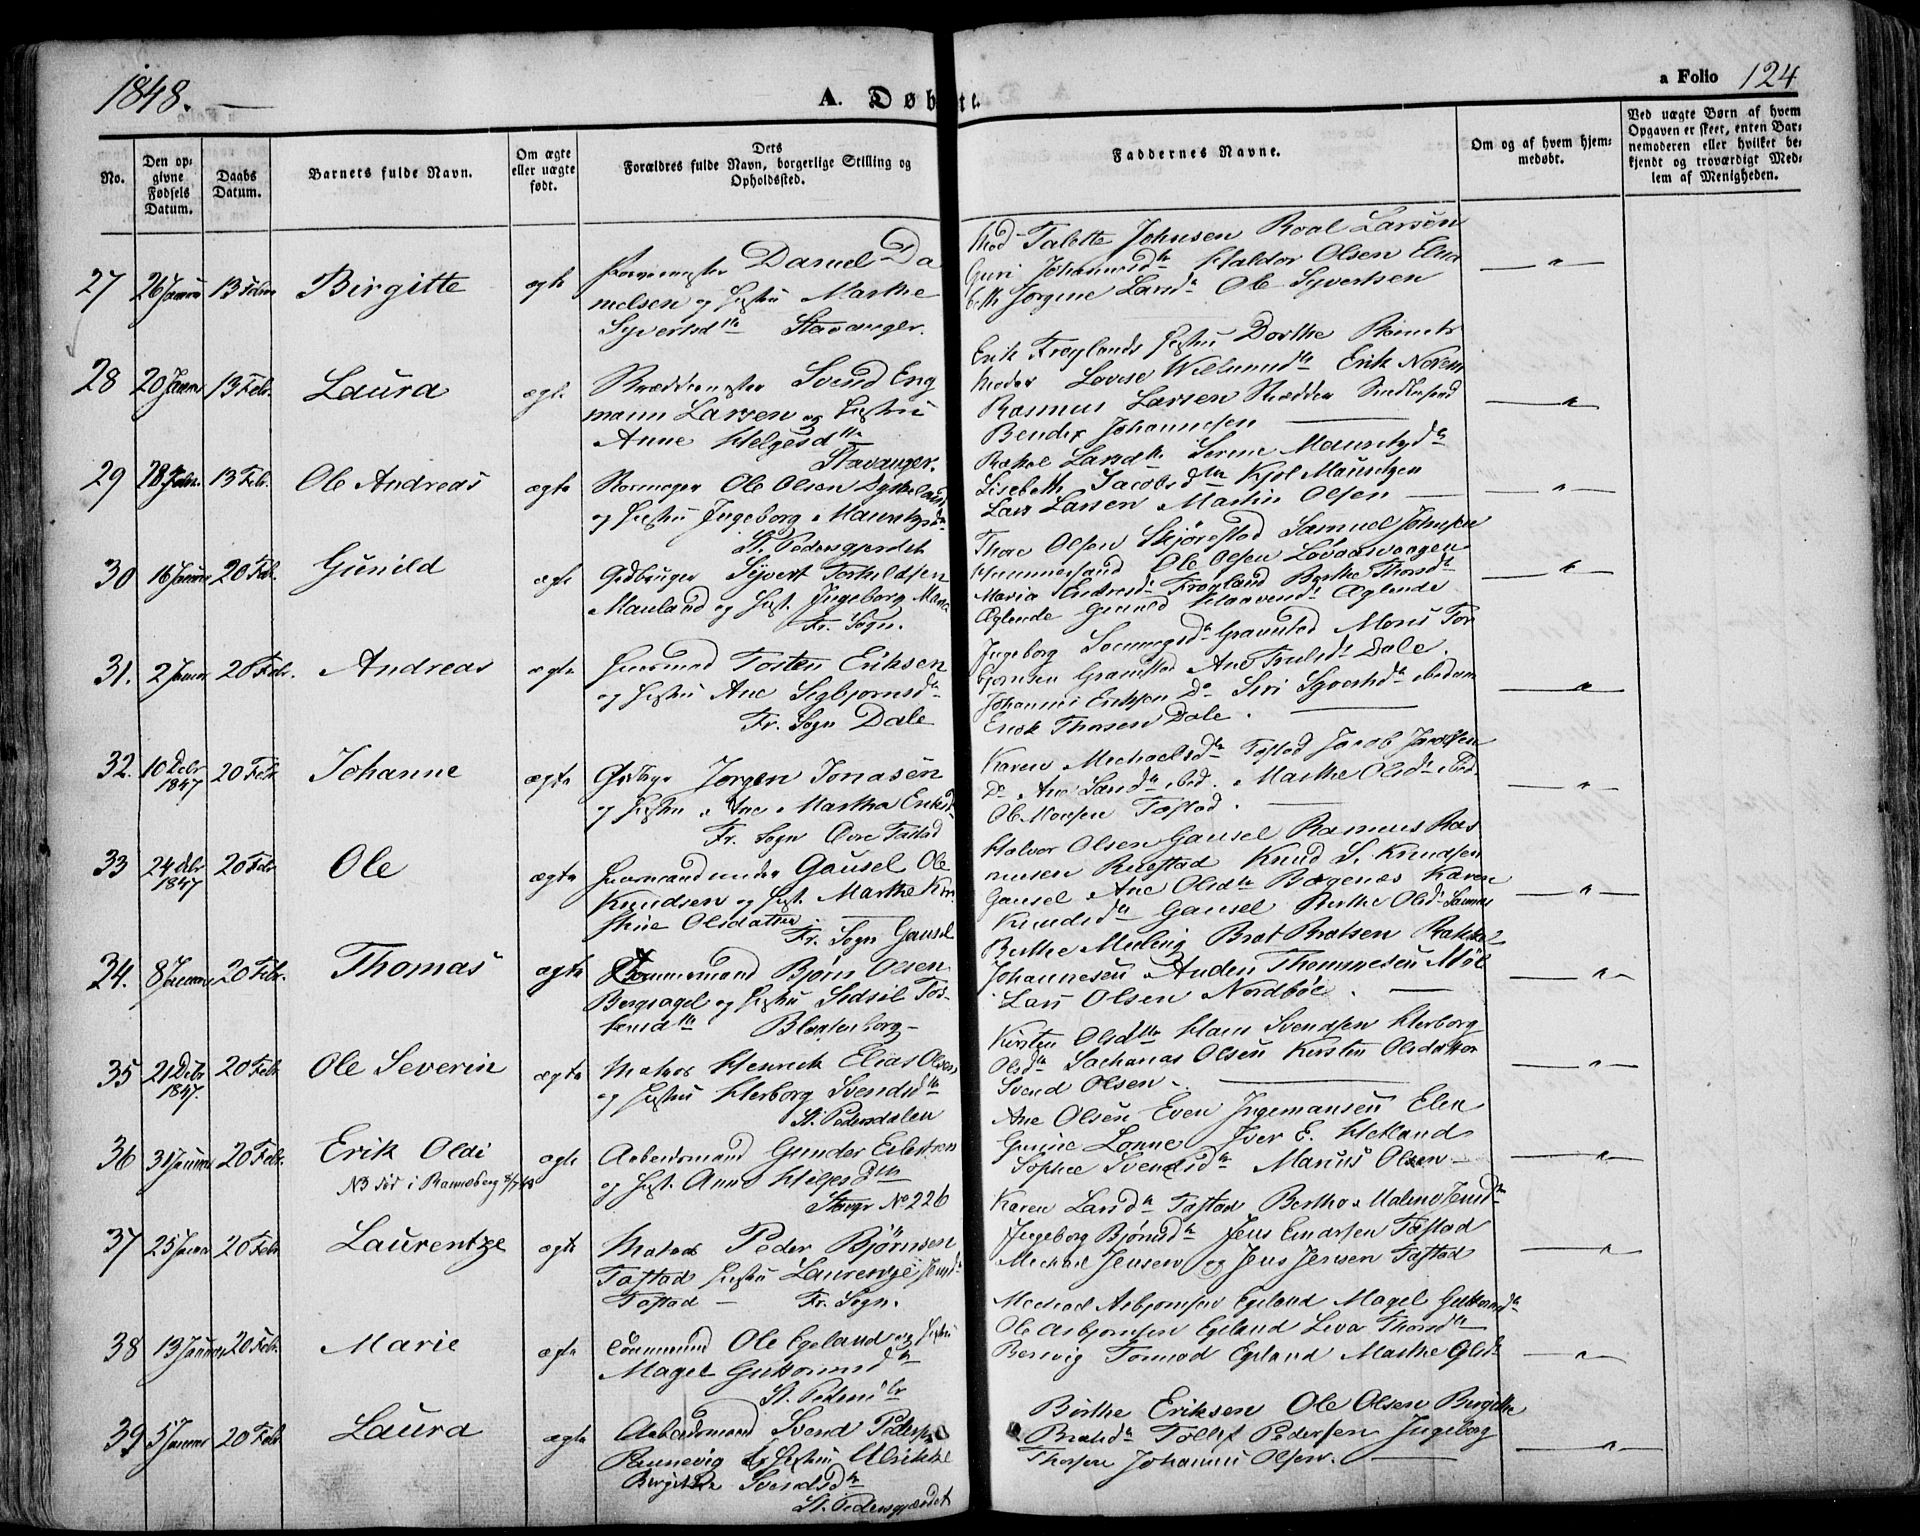 1848. —
A. Døbte.
a Folio 124
No.
Den op-
givne
Fødsels
Datum.
Daabs
Datum.
Barnets fulde Navn.
Om ægte
eller uægte
født.
Dets
Forældres fulde Navn, borgerlige Stilling og
Opholdssted.
Faddernes Navne.
Om og af hvem hjem-
medøbt.
Ved uægte Børn af hvem
Opgaven er skeet, enten Bar-
nemoderen eller hvilket be-
kjendt og troværdigt Med-
lem af Menigheden.
27 26 Januar 13 Febr Birgitte ægte Daniel Da
nielsen og Hustru Marthe
Syvertsdtr Stavanger.
Talette Johnsen Roal Larsen
Guri Johannesdtr Haldor Olsen Elisa
beth Jorgine Larsdtr Ole Syvertsen
28 20 Januar 13 Febr. Laura ægte Skræddermester Svend Eng
mann Larsen og Hustru
Anne Helgesdtr
Stavanger.
Erik Frøylands Hustru Dorthe
Lovise Erik
Rasmus Larsen Skrædder
Bendix Johannesen
29 28 Febr. 13 Feb. Ole Andreas ægte Ole Olsen
og Hustru Ingeborg Mauritzdtr
St. Pedersgjerdet
Rakel Larsdtr Serine Mauritzdtr
Lisebeth Jacobsdtr Kjel Mauritzen
Lars Larsen Martin Olsen
30 16 Januar 20 Feb. Gunild ægte Gdbruger Syvert Torkildsen
Mauland og Hust. Ingeborg Maria
Fr. Sogn.
Thore Olsen Skjørestad Samuel Johnsen
Hummersand Ole Olsen Løvaasvaagen
Maria Endresdtr Frøyland Berthe Thorsdtr
Øglende Gunild Haavendtr Øglende
31. 2 Januar 20 Febr. Andreas ægte Huusmand Tosten Eriksen
og Hustru Ane Sigbjørnsdtr
Fr. Sogn Dale
Ingeborg Gramstad Mons Tor
bjørnsen Gramstad Ane Trulsdtr Dale.
Johannes Eriksen Do Siri Syvertsdtr ibidem
Erik Thorsen Dale.
32. 10 Debr
1847 20 Febr Johanne ægte Jorgen Jonasen
og Hustru Ane Martha Eriksdtr
Fr. Sogn Øvre Tastad
Karen Michaelsdtr Tastad Jacob Jacobsen
Do Ane Larsdtr ibid. Marthe Olsdtr ibid.
Ole Monsen Tastad.
33 24 Debr
1847 20 Febr Ole ægte Huusmand under Gausel Ole
Knudsen og Hust. Marthe Kir
stine Olsdatter
Fr. Sogn Gausel
Halvor Olsen Gausel Rasmus Ras
musen Ruestad Knud S. Knudsen
Gausel Ane Olsdtr Bøgenæs Karen
Knudsdtr Gausel Berthe Olsdtr
34. 8 Januar 20 Febr. Thomas ægte Tømmermand Bjørn Olsen
Bergsagel og Hustru Sidsil Tor
kensdtr Blesterborg
Berthe Meeling Brat Bratsen Rakkel
Johannesen Anden Thommesen Møl
Lars Olsen Nordbøe.
35 21 Debr
1847. 20 Febr. Ole Severin ægte Matros Henrik Elias Olsen
og Hustru Herborg Svendsdtr
St. Pedersdalen
Kirsten Olsdtr Hans Svendsen Herborg
Olsdtr Sacharias Olsen Kirsten Olsdatter
Svend Olsen
36 31 Januar 20 Febr. Erik Oldi
NB død i Ranneberg
ægte Arbeidsmand Gunder Eilertsen
og Hust. Anne Helgesdtr
Stvgr No 226
Ane Olsen Even Ingemansen Elen
Gurine Lønne Iver E. Hetland
Sophie Svendsdtr Marius Olsen
37 25 Januar 20 Febr Laurentze ægte Matros Peder Bjørnsen
Tastad Hustru Laurentze Jensdtr
Tastad — Fr. Sogn.
Karen Larsdtr Tastad Bertha Malene Jensdtr
Ingeborg Bjørnsdtr Jens Einarsen Tastad
Michael Jensen og Jens Jensen Tastad
38 13 Januar 20 Febr. Marie ægte Tømmermand Ole Egeland og Hustru
Magel Guttormsdtr
St. Pedersgr
Michael Asbjørnsen Egeland Magel Guttormsdtr
Ole Asbjørnsen Egeland Leva Thorsdtr
Tonnod Egeland Marthe Olsdtr
39 5 Januar 20 Feb Laura ægte Arbeidsmand Svend Pedersen
Rannevig og Hustru Ulrikke
Birgitte Svendsdtr
St. Pedersgjerdet
Birthe Eriksen Ole Olsen Birgitte
Bratsdtr Tollef Pedersen Ingeborg
Thorsen Johannes Olsen.